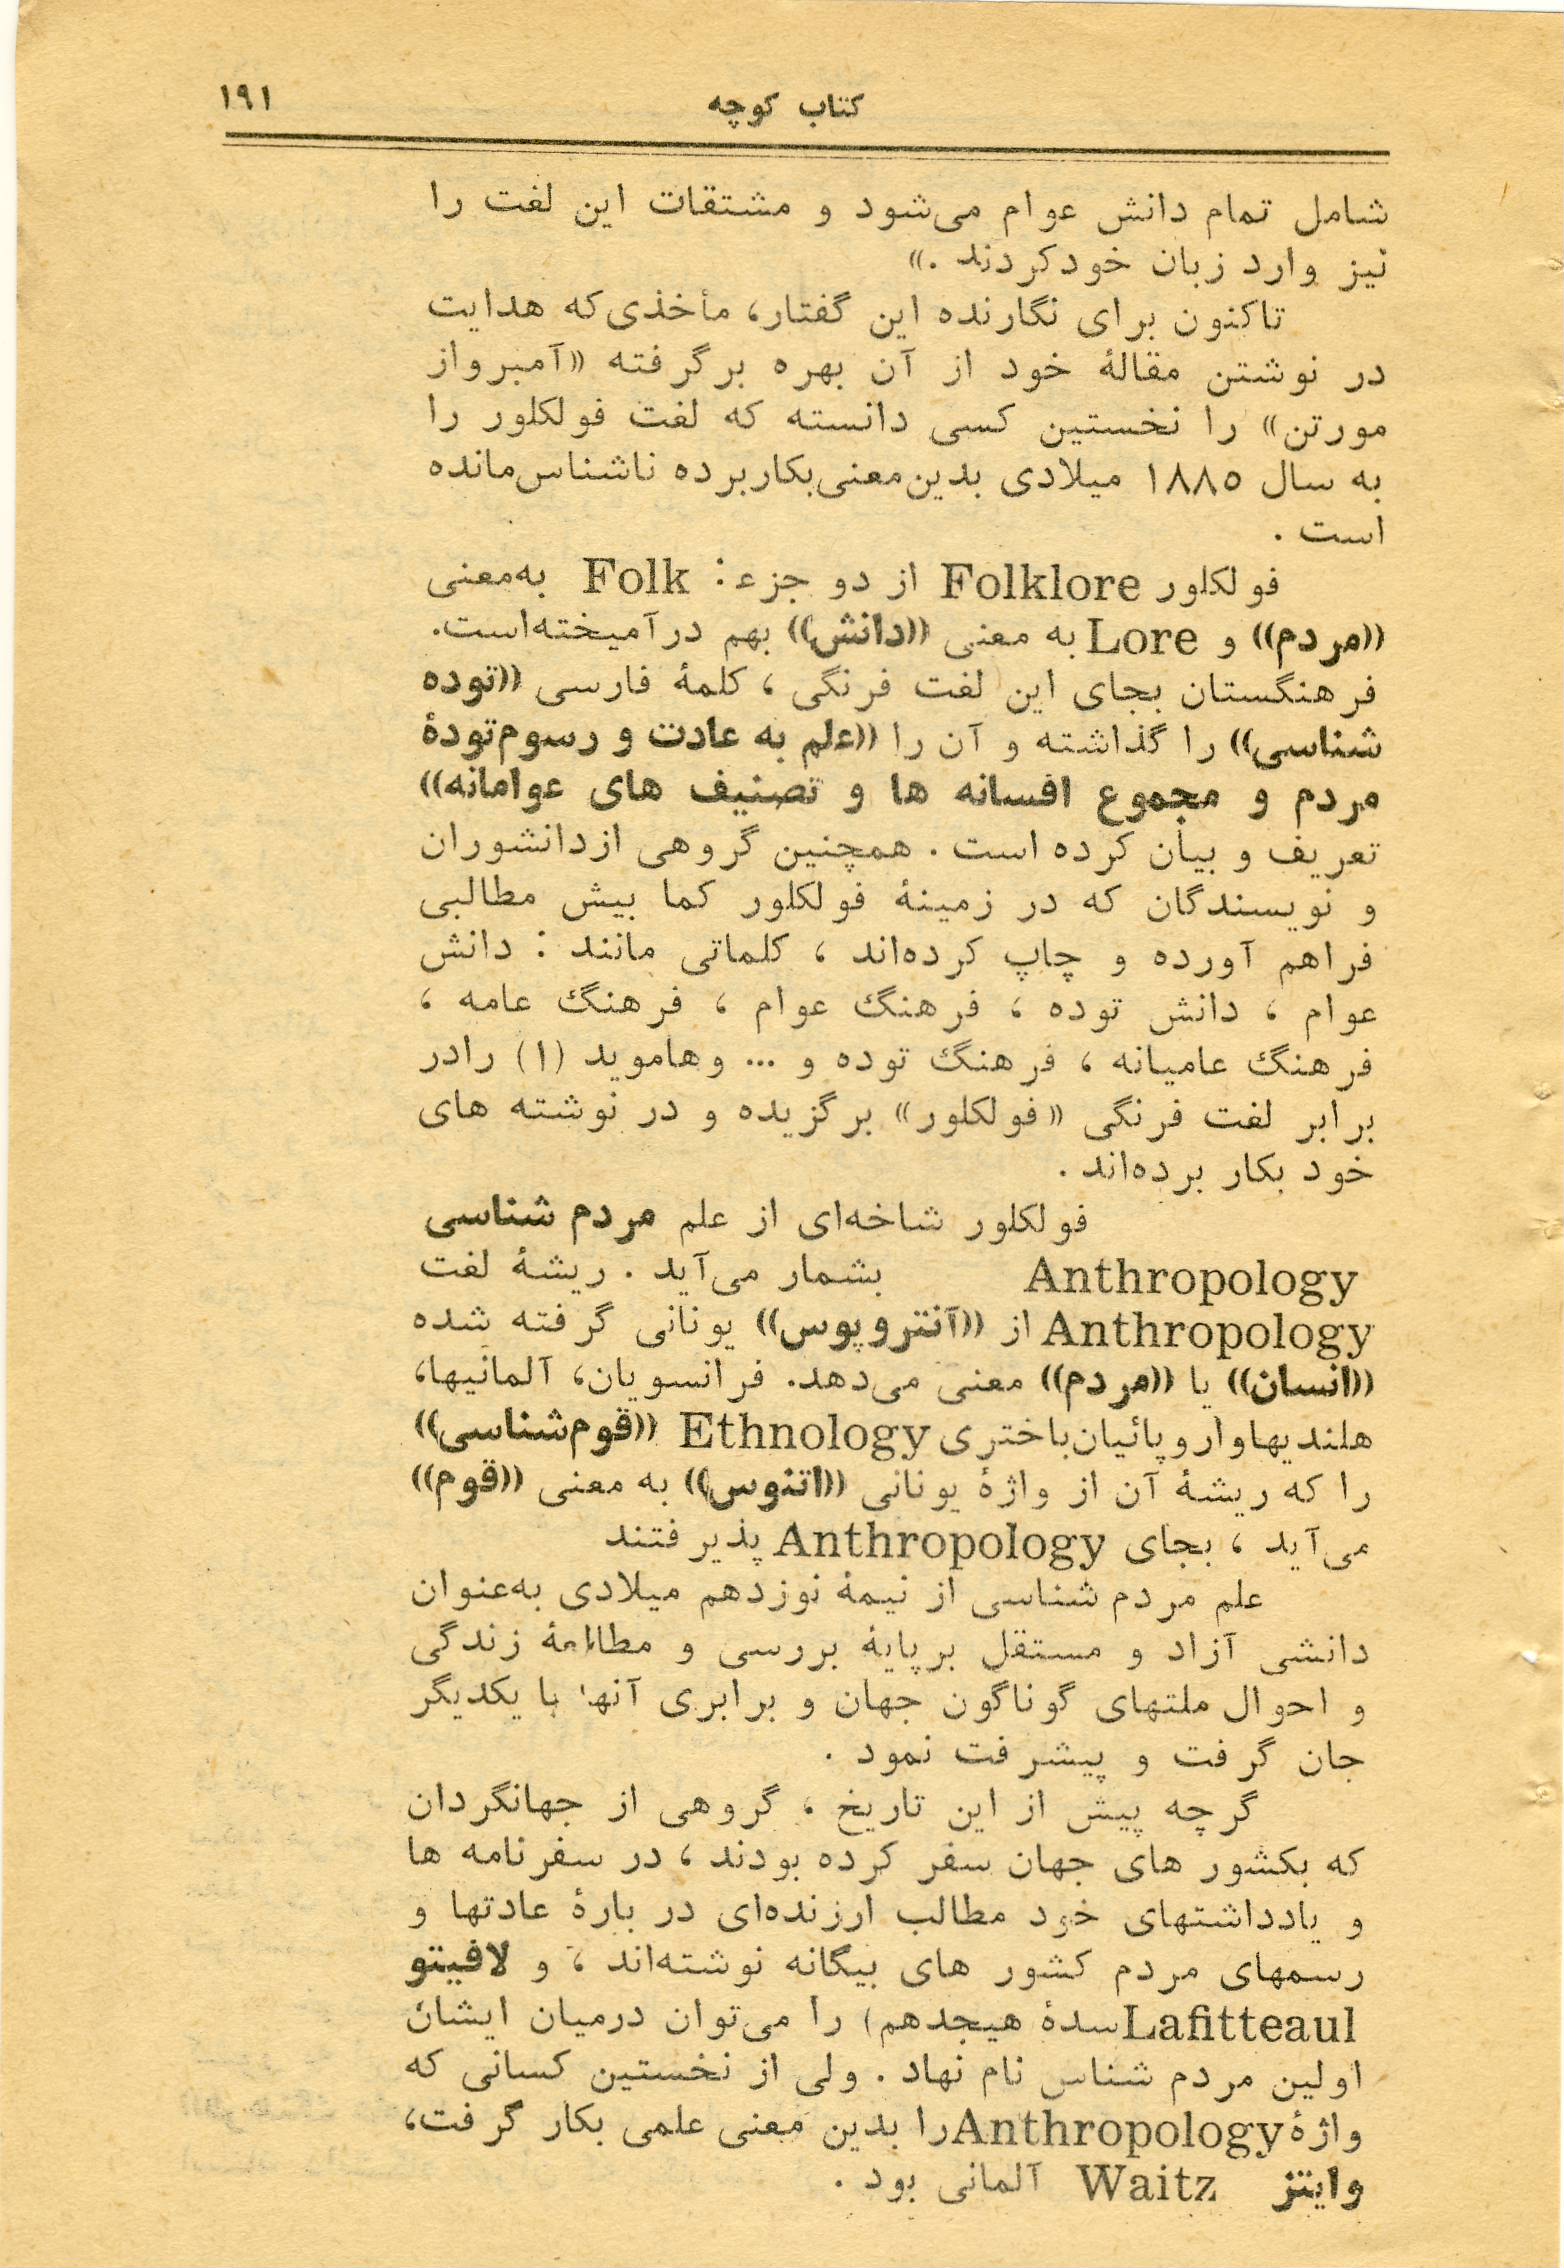 کتاب کوچه
۱۹۱
شامل تمام دانش عوام می‌شود و مشتقات این لغت را
نیز وارد زبان خودکردند .»
تاکنون برای نگارنده این گفتار، مأخذی‌که هدایت
در نوشتن مقالهٔ خود از آن بهره برگرفته «آمبرواز
مورتن» را نخستین کسی دانسته که لغت فولکلور را
به سال ۱۸۸۵ میلادی بدین‌معنی‌بکاربرده ناشناس‌مانده
است .
فولکلور Folklore از دو جزء : Folk به‌معنی
«مردم» و Lore به معنی «دانش» بهم درآمیخته‌است.
فرهنگستان بجای این لغت فرنگی ، کلمهٔ فارسی «توده
شناسی» را گذاشته و آن را «علم به عادت و رسوم‌تودهٔ
مردم و مجموع افسانه ها و تصنیف های عوامانه»
تعریف و بیان کرده است . همچنین گروهی ازدانشوران
و نویسندگان که در زمینهٔ فولکلور کما بیش مطالبی
فراهم آورده و چاپ کرده‌اند ، کلماتی مانند : دانش
عوام ، دانش توده ، فرهنگ عوام ، فرهنگ عامه ،
فرهنگ عامیانه ، فرهنگ توده و ... وهاموید (۱) رادر
برابر لغت فرنگی «فولکلور» برگزیده و در نوشته های
خود بکار برده‌اند .
فولکلور شاخه‌ای از علم مردم شناسی
Anthropology بشمار می‌آید . ریشهٔ لغت
Anthropology از «آنتروپوس» یونانی گرفته شده
«انسان» یا «مردم» معنی می‌دهد. فرانسویان، آلمانیها،
هلندیهاواروپائیان‌باختری Ethnology «قوم‌شناسی»
را که ریشهٔ آن از واژهٔ یونانی «اتنوس» به معنی «قوم»
می‌آید ، بجای Anthropology پذیرفتند
علم مردم شناسی از نیمهٔ نوزدهم میلادی به‌عنوان
دانشی آزاد و مستقل برپایهٔ بررسی و مطالعهٔ زندگی
و احوال ملتهای گوناگون جهان و برابری آنها با یکدیگر
جان گرفت و پیشرفت نمود .
گرچه پیش از این تاریخ ، گروهی از جهانگردان
که بکشور های جهان سفر کرده بودند ، در سفرنامه ها
و یادداشتهای خود مطالب ارزنده‌ای در بارهٔ عادتها و
رسمهای مردم کشور های بیگانه نوشته‌اند ، و لافیتو
Lafitteaul سدهٔ هیجدهم) را می‌توان درمیان ایشان
اولین مردم شناس نام نهاد . ولی از نخستین کسانی که
واژهٔ Anthropology را بدین معنی علمی بکار گرفت،
وایتز Waitz آلمانی بود .